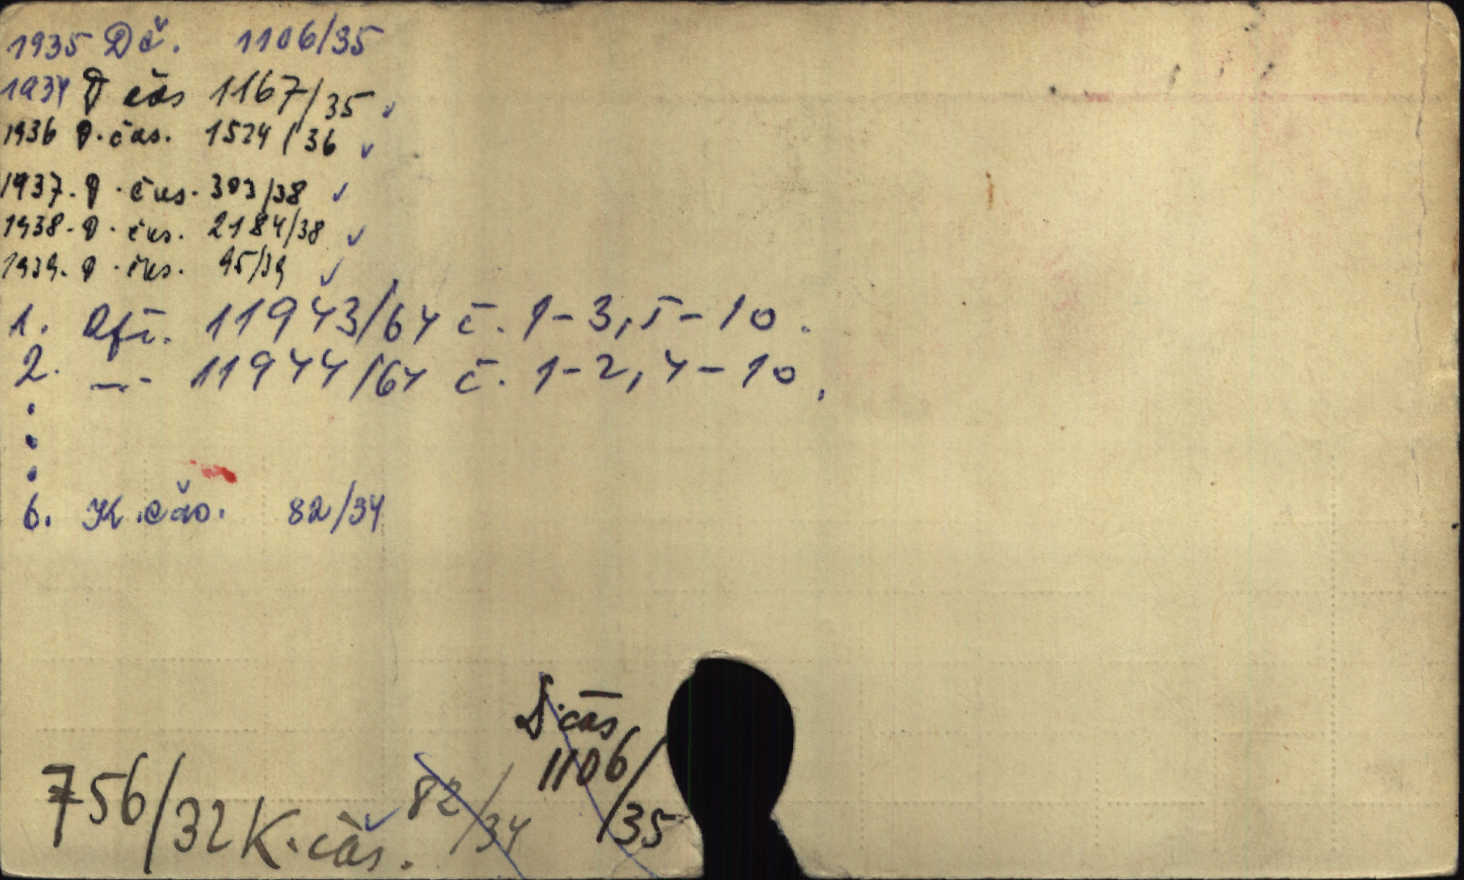 1935 Dč. 1106/35
1934 D čas 1167/35 ✓
1936 D. čas. 1524/36 ✓
1937. D. čas. 303/38 ✓
1938. D. čas. 2184/38 ✓
1939. D. čas. 95/39 ✓
1. 11943/64 č. 1-3, 5-10.
2. —"— 11944/64 č. 1-2, 4-10.
6. K. čas. 82/34
D. čas
1106/35
756/32 K. čas. ✓ 82/34